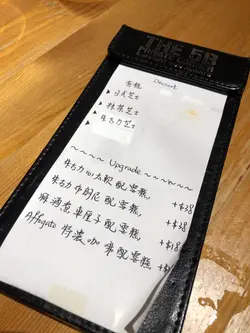 THE 5B
Dessert
蛋糕
▸ 日式芝士
▸ 抹茶芝士
▸ 朱古力芝士
~~~~ Upgrade ~~~~
朱古力心太軟配雪糕, +$38
朱古力布朗尼配雪糕, +$38
用酒煮車厘子配雪糕, +$38
Affogato 特濃咖啡配雪糕, +$18